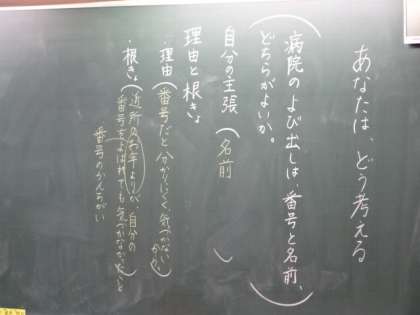 あなたは、どう考える
病院のよび出しは、番号と名前、
どちらがよいか。
自分の主張（名前　）
理由と根きょ
・理由（番号だと分かりにくく気づないから。）
・根きょ（近所のお年よりが、自分の
番号をよばれても気づかなかったこと）
番号のかんちがい